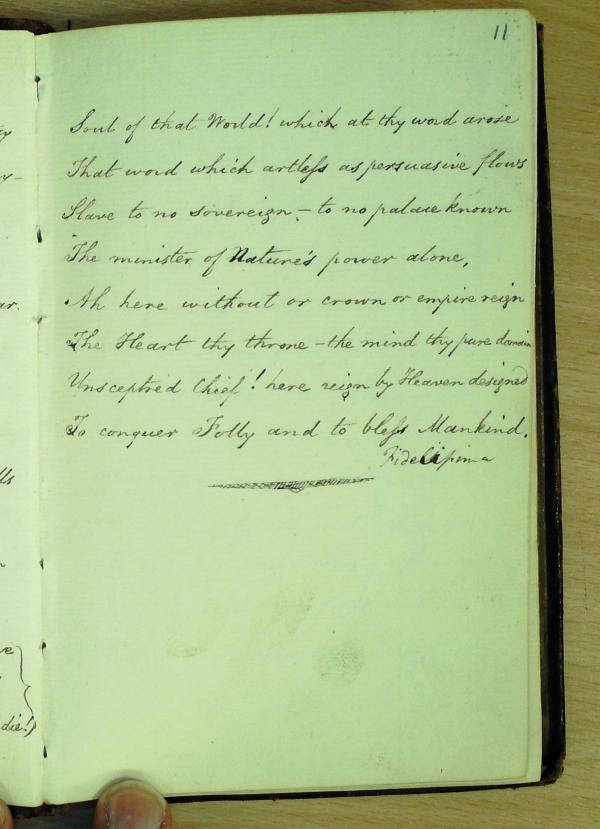 11
Soul of that World! which at thy word arose
That word which artless as persuasive flows
Slave to no sovereign – to no palace known
The minister of Nature's power alone,
Ah here without or crown or empire reign
The Heart thy throne – the mind thy pure domain
Unsceptred Chief! here reign by Heaven designed
To conquer Folly and to bless Mankind.
Fidelissima
die!)